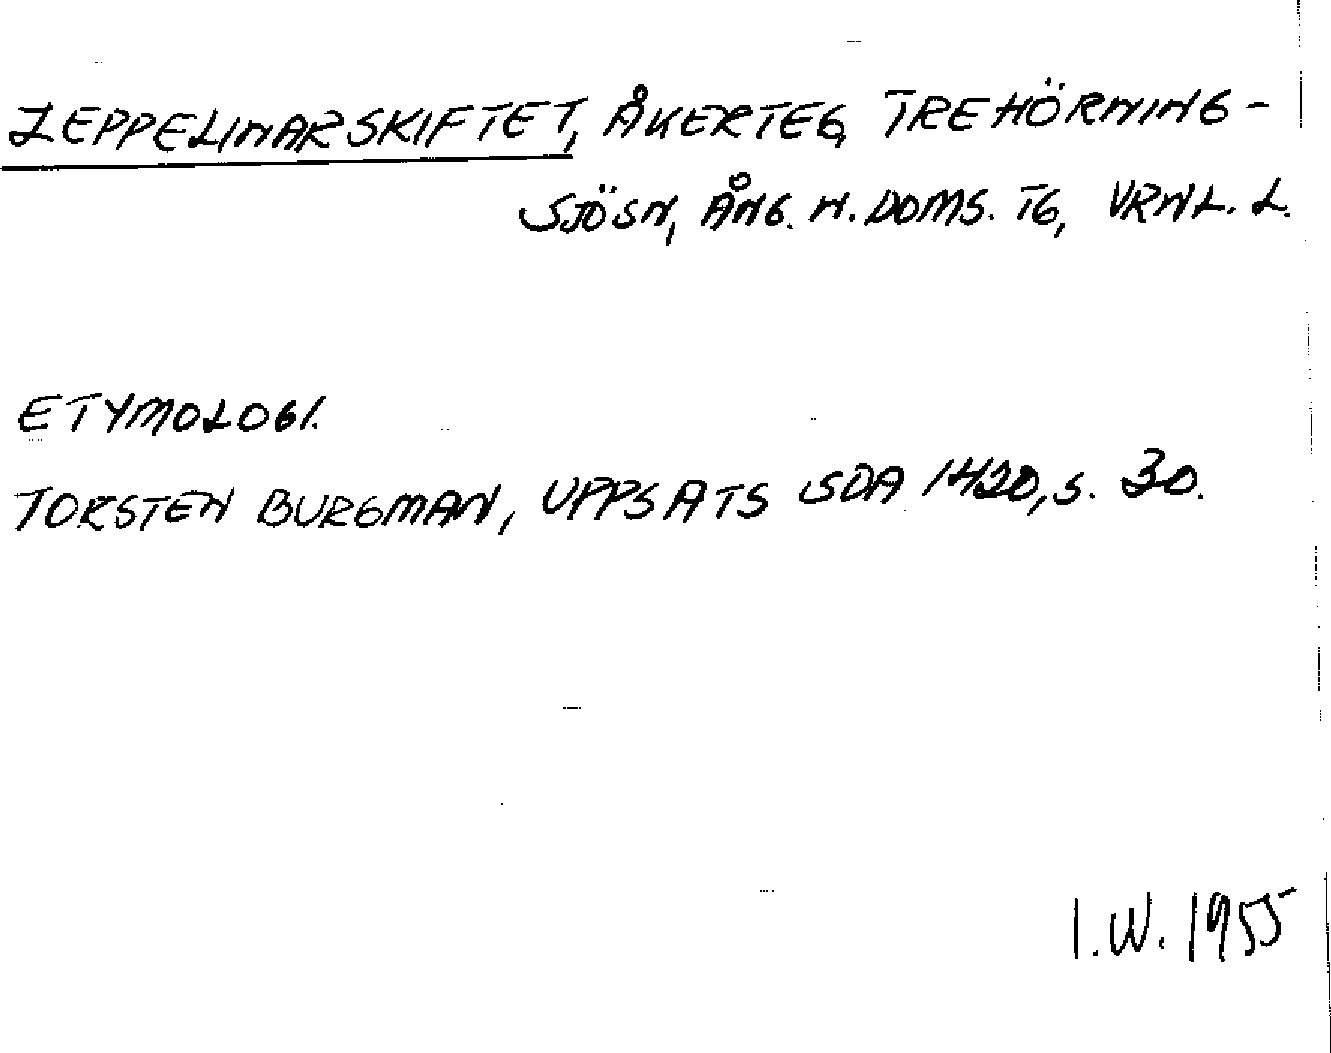 ZEPPELINARSKIFTET, ÅKERTEG, TREHÖRNING-
SJÖSN, ÅNG. N. DOMS. TG, VRNL. L.
ETYMOLOGI.
TORSTEN BURGMAN, UPPSATS SDA 1420, S. 30.
I.W. 1955